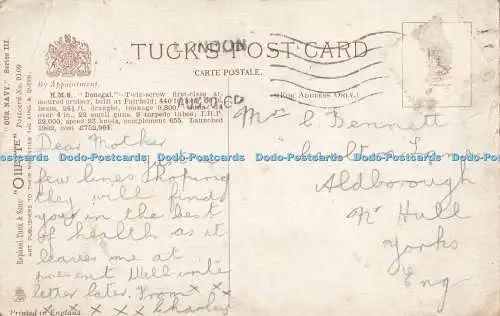 TUCK'S POST CARD
(CARTE POSTALE.)
By Appointment.
(FOR ADDRESS ONLY.)
LONDON
"OUR NAVY." Series III.
Postcard No. 9109
"OILETTE"
Raphael Tuck & Sons'
ART PUBLISHERS TO THEIR MAJESTIES THE KING & QUEEN.
H.M.S. "Donegal."—Twin-screw first-class ar-
moured cruiser, built at Fairfield; 440
4 in., 22 small guns, 2 torpedo tubes; I.H.P
22,000; speed 23 knots, complement 655. Launched
1902, cost £752,964.
Dear Mother
Just
few lines hoping
they will find
you in the best
of health as it
leaves me at
present Will write
letter later. From x x
x x x x x x Charley
Printed in England
Mrs C. Bennett
Aldborough
Nr Hull
Yorks
Eng
Dodo-Postcards Dodo-Postcards Dodo-Postcards Dodo-Postcards Dodo-Postcards